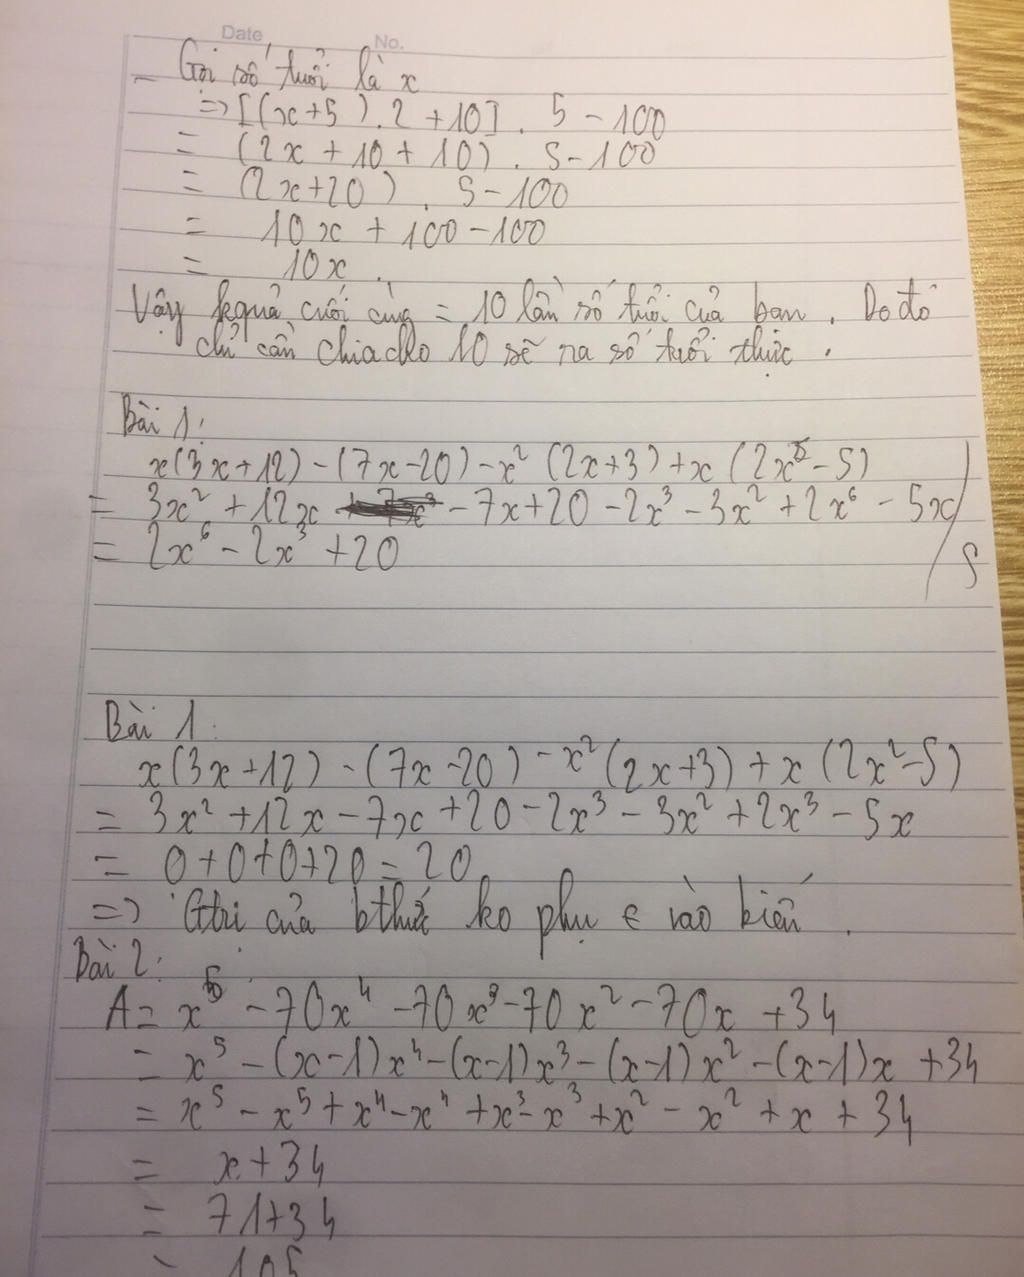 Date No.
- Gọi số tuổi là x
=> [(x+5).2+10]. 5-100
= (2x+10+10). 5-100
= (2x+20). 5-100
= 10x+100-100
= 10x.
Vậy kquả cuối cùng = 10 lần số tuổi của bạn. Do đó
chỉ cần chia cho 10 sẽ ra số tuổi thực.
Bài 1:
x(3x+12)-(7x-20)-x²(2x+3)+x(2x⁵-5)
= 3x²+12x -7x+20-2x³-3x²+2x⁶-5x
= 2x⁶-2x³+20 S
Bài 1:
x(3x+12)-(7x-20)-x²(2x+3)+x(2x²-5)
= 3x²+12x-7x+20-2x³-3x²+2x³-5x
= 0+0+0+20=20
=> Gtri của bthức ko phụ € vào biến.
Bài 2:
A= x⁵-70x⁴-70x³-70x²-70x+34
= x⁵-(x-1)x⁴-(x-1)x³-(x-1)x²-(x-1)x+34
= x⁵-x⁵+x⁴-x⁴+x³-x³+x²-x²+x+34
= x+34
= 71+34
= 105